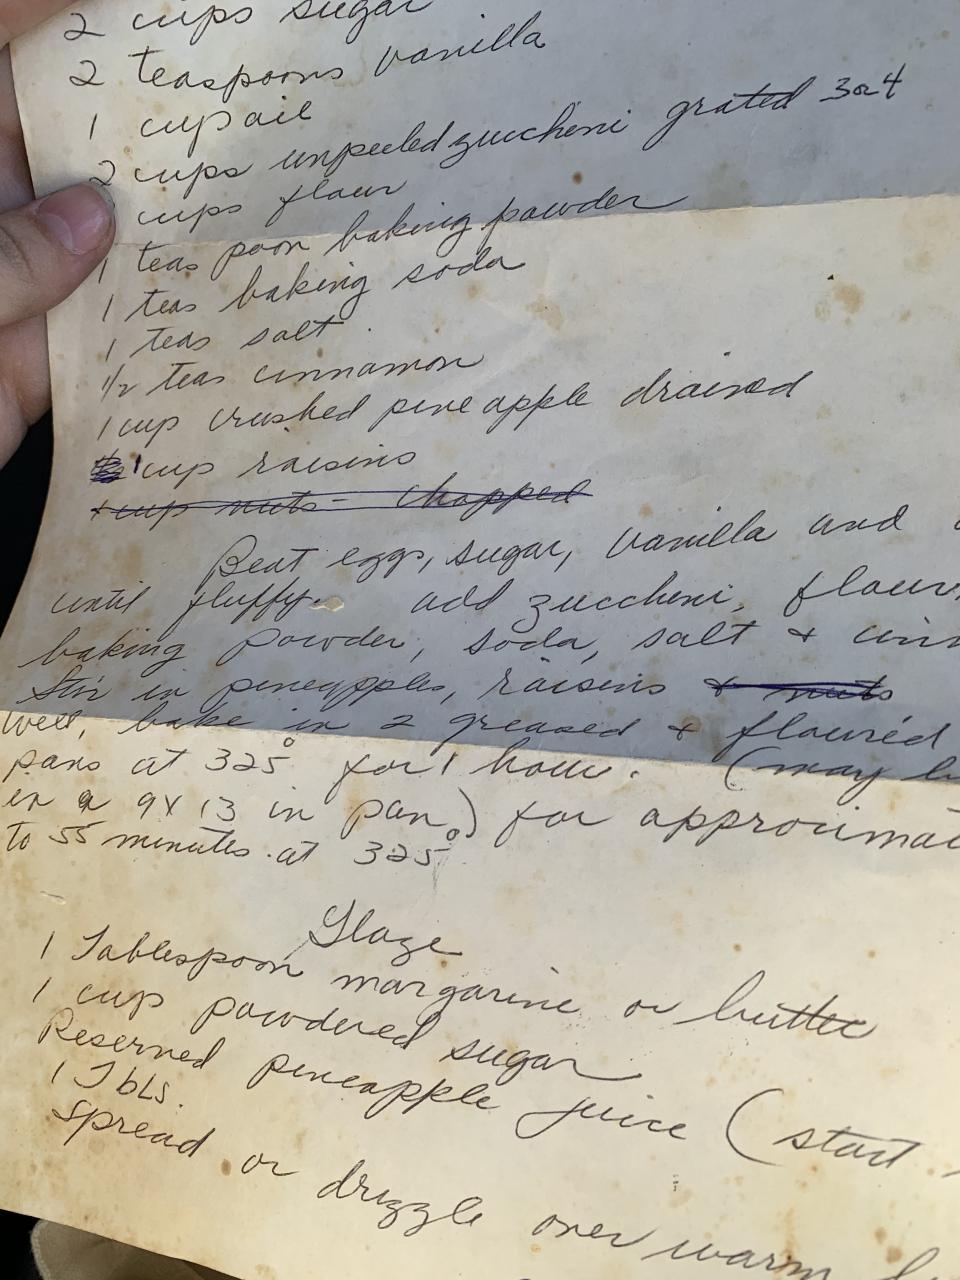 2 cups sugar
2 teaspoons vanilla
1 cup oil
2 cups unpeeled zuccheni grated 3 or 4
cups flour
1 teaspoon baking powder
1 teas baking soda
1 teas salt
1/2 teas cinnamon
1 cup crushed pineapple drained
1 cup raisins
cup nuts - chopped
Beat eggs, sugar, vanilla and
until fluffy. add zuccheni, flour,
baking powder, soda, salt + cinn
Stir in pineapples, raisins + nuts
well, bake in 2 greased + floured
pans at 325° for 1 hour. (may b
in a 9x13 in pan) for approximat
to 55 minutes at 325°
Glaze
1 Tablespoon margarine or butter
1 cup powdered sugar
Reserved pineapple juice (start
1 Tbls.
spread or drizzle over warm